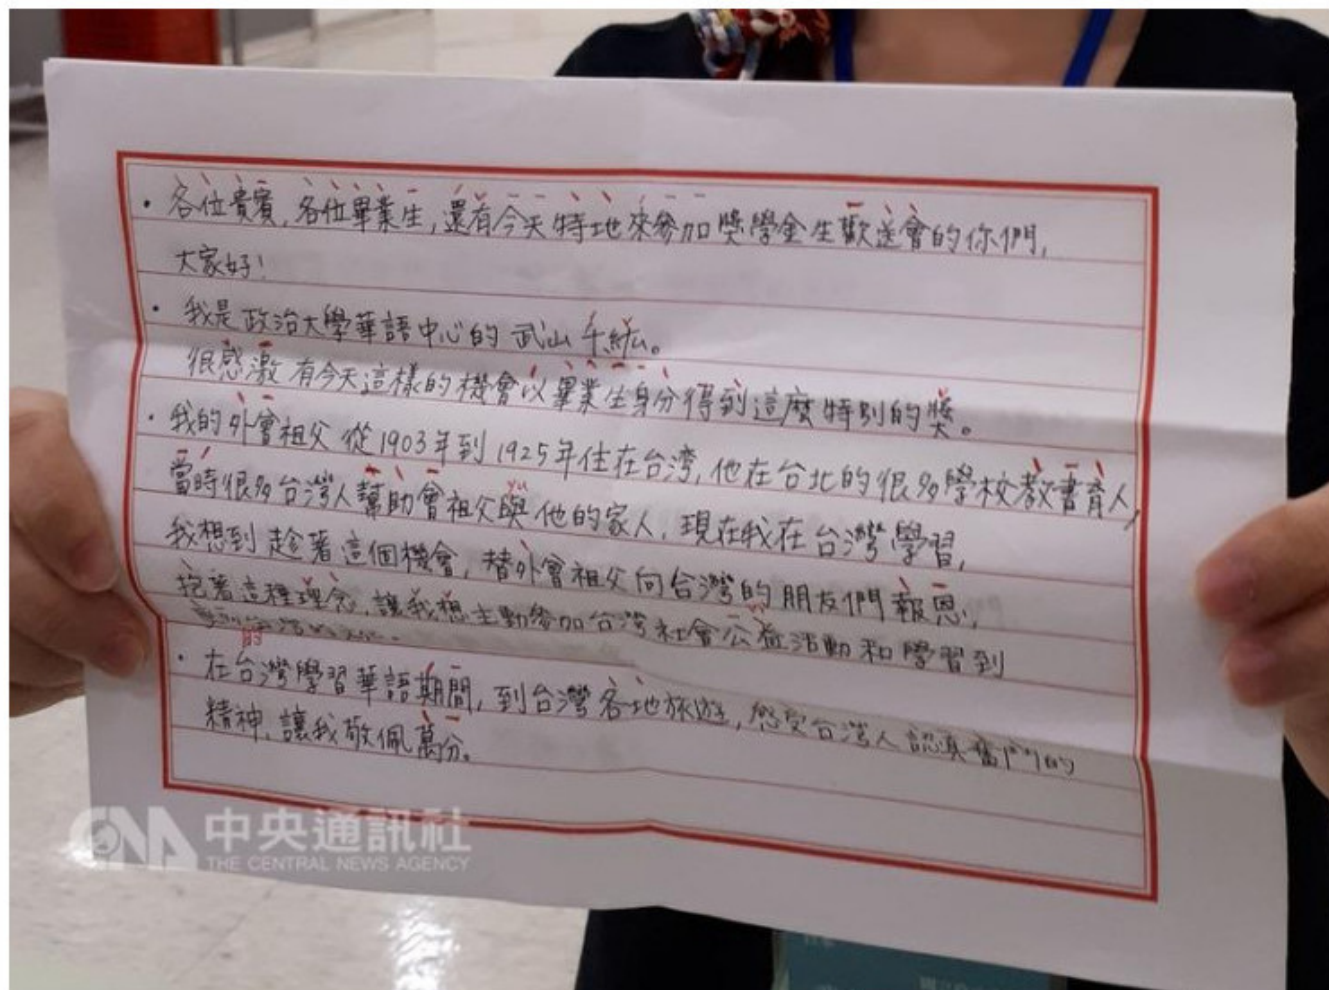 · 各位貴賓,各位畢業生,還有今天特地來參加獎學金生歡送會的你們,
大家好!
· 我是政治大學華語中心的武山千紘。
很感激有今天這樣的機會以畢業生身分得到這麼特別的獎。
· 我的外曾祖父從1903年到1925年住在台湾,他在台北的很多學校教書育人,
當時很多台灣人幫助曾祖父與他的家人,現在我在台灣學習,
我想到趁著這個機會,替外曾祖父向台灣的朋友們報恩,
抱著這種理念,讓我想主動參加台灣社會公益活動和學習到
的
· 在台灣學習華語期間,到台灣各地旅遊,感受台灣人認真奮鬥的
精神,讓我敬佩萬分。
中央通訊社
THE CENTRAL NEWS AGENCY